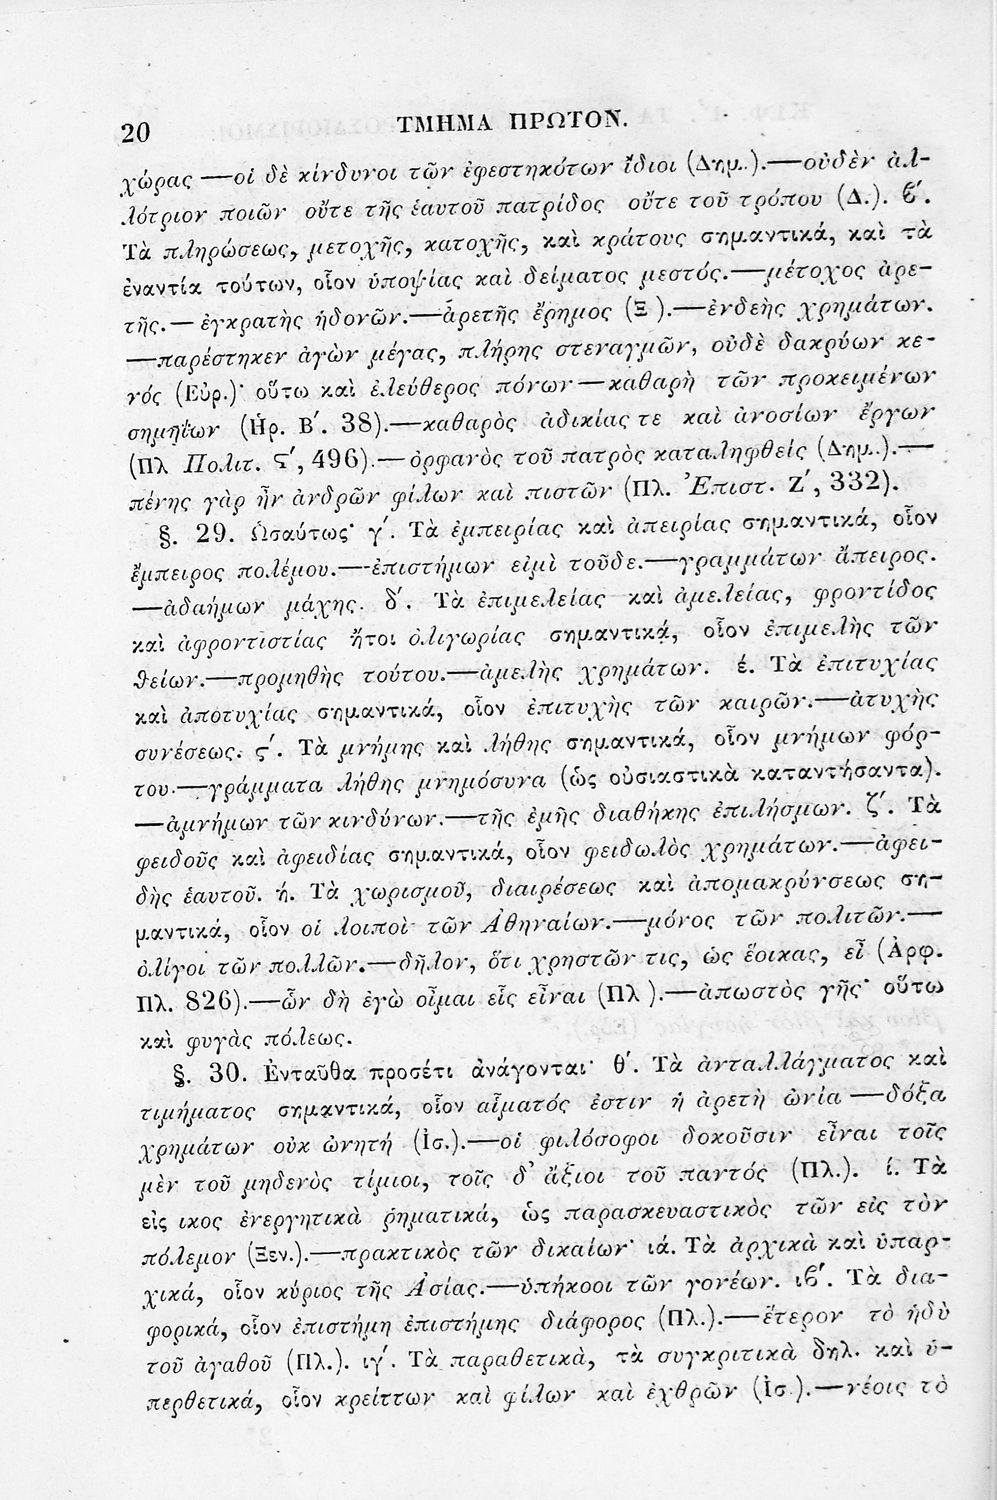 20 ΤΜΗΜΑ ΠΡΩΤΟΝ.
χώρας —οἱ δὲ κίνδυνοι τῶν ἐφεστηκότων ἴδιοι (Δημ.).—οὐδὲν ἀλ-
λότριον ποιῶν οὔτε τῆς ἑαυτοῦ πατρίδος οὔτε τοῦ τρόπου (Δ.). ϐ΄.
Τὰ πληρώσεως, μετοχῆς, κατοχῆς, καὶ κράτους σημαντικά, καὶ τὰ
ἐναντία τούτων, οἷον ὑποψίας καὶ δείματος μεστός.—μέτοχος ἀρε-
τῆς.—ἐγκρατὴς ἡδονῶν.—ἀρετῆς ἔρημος (Ξ ).—ἐνδεὴς χρημάτων.
—παρέστηκεν ἀγὼν μέγας, πλήρης στεναγμῶν, οὐδὲ δακρύων κε-
νός (Εὐρ.)· οὕτω καὶ ἐλεύθερος πόνων—καθαρὴ τῶν προκειμένων
σημηΐων (Ἡρ. Β΄. 38).—καθαρὸς ἀδικίας τε καὶ ἀνοσίων ἔργων
(Πλ Πολιτ. Ϛ΄, 496).—ὀρφανὸς τοῦ πατρὸς καταληφθείς (Δημ.).—
πένης γὰρ ἦν ἀνδρῶν φίλων καὶ πιστῶν (Πλ. Ἐπιστ. Ζ΄, 332).
§. 29. Ὡσαύτως· γ΄. Τὰ ἐμπειρίας καὶ ἀπειρίας σημαντικά, οἷον
ἔμπειρος πολέμου.—ἐπιστήμων εἰμὶ τοῦδε.—γραμμάτων ἄπειρος.
—ἀδαήμων μάχης. δ΄. Τὰ ἐπιμελείας καὶ ἀμελείας, φροντίδος
καὶ ἀφροντιστίας ἤτοι ὀλιγωρίας σημαντικά, οἷον ἐπιμελὴς τῶν
θείων.—προμηθὴς τούτου.—ἀμελὴς χρημάτων. έ. Τὰ ἐπιτυχίας
καὶ ἀποτυχίας σημαντικά, οἷον ἐπιτυχὴς τῶν καιρῶν.—ἀτυχὴς
συνέσεως. ϛ΄. Τὰ μνήμης καὶ λήθης σημαντικά, οἷον μνήμων φόρ-
του.—γράμματα λήθης μνημόσυνα (ὡς οὐσιαστικὰ καταντήσαντα).
—ἀμνήμων τῶν κινδύνων.—τῆς ἐμῆς διαθήκης ἐπιλήσμων. ζ΄. Τὰ
φειδοῦς καὶ ἀφειδίας σημαντικά, οἷον φειδωλὸς χρημάτων.—ἀφει-
δὴς ἑαυτοῦ. ή. Τὰ χωρισμοῦ, διαιρέσεως καὶ ἀπομακρύνσεως ση-
μαντικά, οἷον οἱ λοιποὶ τῶν Ἀθηναίων.—μόνος τῶν πολιτῶν.—
ὀλίγοι τῶν πολλῶν.—δῆλον, ὅτι χρηστῶν τις, ὡς ἔοικας, εἶ (Ἀρφ.
Πλ. 826).—ὧν δὴ ἐγὼ οἶμαι εἷς εἶναι (Πλ ).—ἀπωστὸς γῆς· οὕτω
καὶ φυγὰς πόλεως.
§. 30. Ἐνταῦθα προσέτι ἀνάγονται· θ΄. Τὰ ἀνταλλάγματος καὶ
τιμήματος σημαντικά, οἷον αἵματός ἐστιν ἡ ἀρετὴ ὠνία —δόξα
χρημάτων οὐκ ὠνητή (Ἰσ.).—οἱ φιλόσοφοι δοκοῦσιν εἶναι τοῖς
μὲν τοῦ μηδενὸς τίμιοι, τοῖς δ' ἄξιοι τοῦ παντός (Πλ.). ί. Τὰ
εἰς ικος ἐνεργητικὰ ῥηματικά, ὡς παρασκευαστικὸς τῶν εἰς τὸν
πόλεμον (Ξεν.).—πρακτικὸς τῶν δικαίων· ιά. Τὰ ἀρχικὰ καὶ ὑπαρ-
χικά, οἷον κύριος τῆς Ἀσίας.—ὑπήκοοι τῶν γονέων. ιϐ΄. Τὰ δια-
φορικά, οἷον ἐπιστήμη ἐπιστήμης διάφορος (Πλ.).—ἕτερον τὸ ἡδὺ
τοῦ ἀγαθοῦ (Πλ.). ιγ΄. Τὰ παραθετικά, τὰ συγκριτικὰ δηλ. καὶ ὑ-
περθετικά, οἷον κρείττων καὶ φίλων καὶ ἐχθρῶν (Ἰσ ).—νέοις τὸ